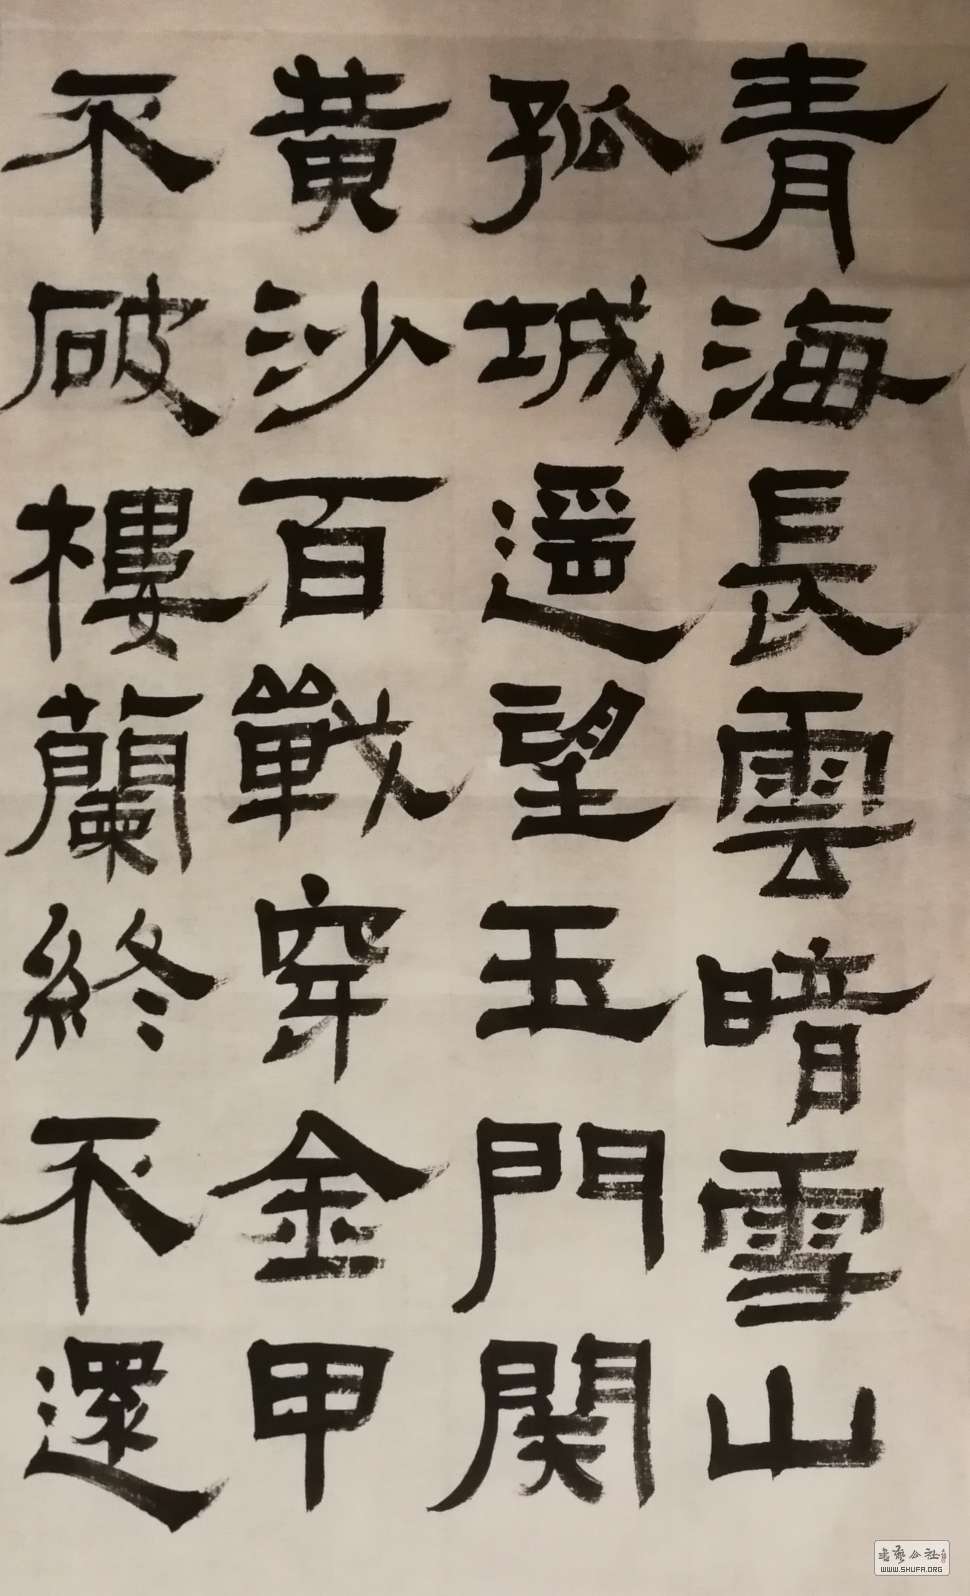 青海長雲暗雪山
孤城遥望玉門関
黄沙百戰穿金甲
不破樓蘭終不還
WWW.SHUFA.ORG